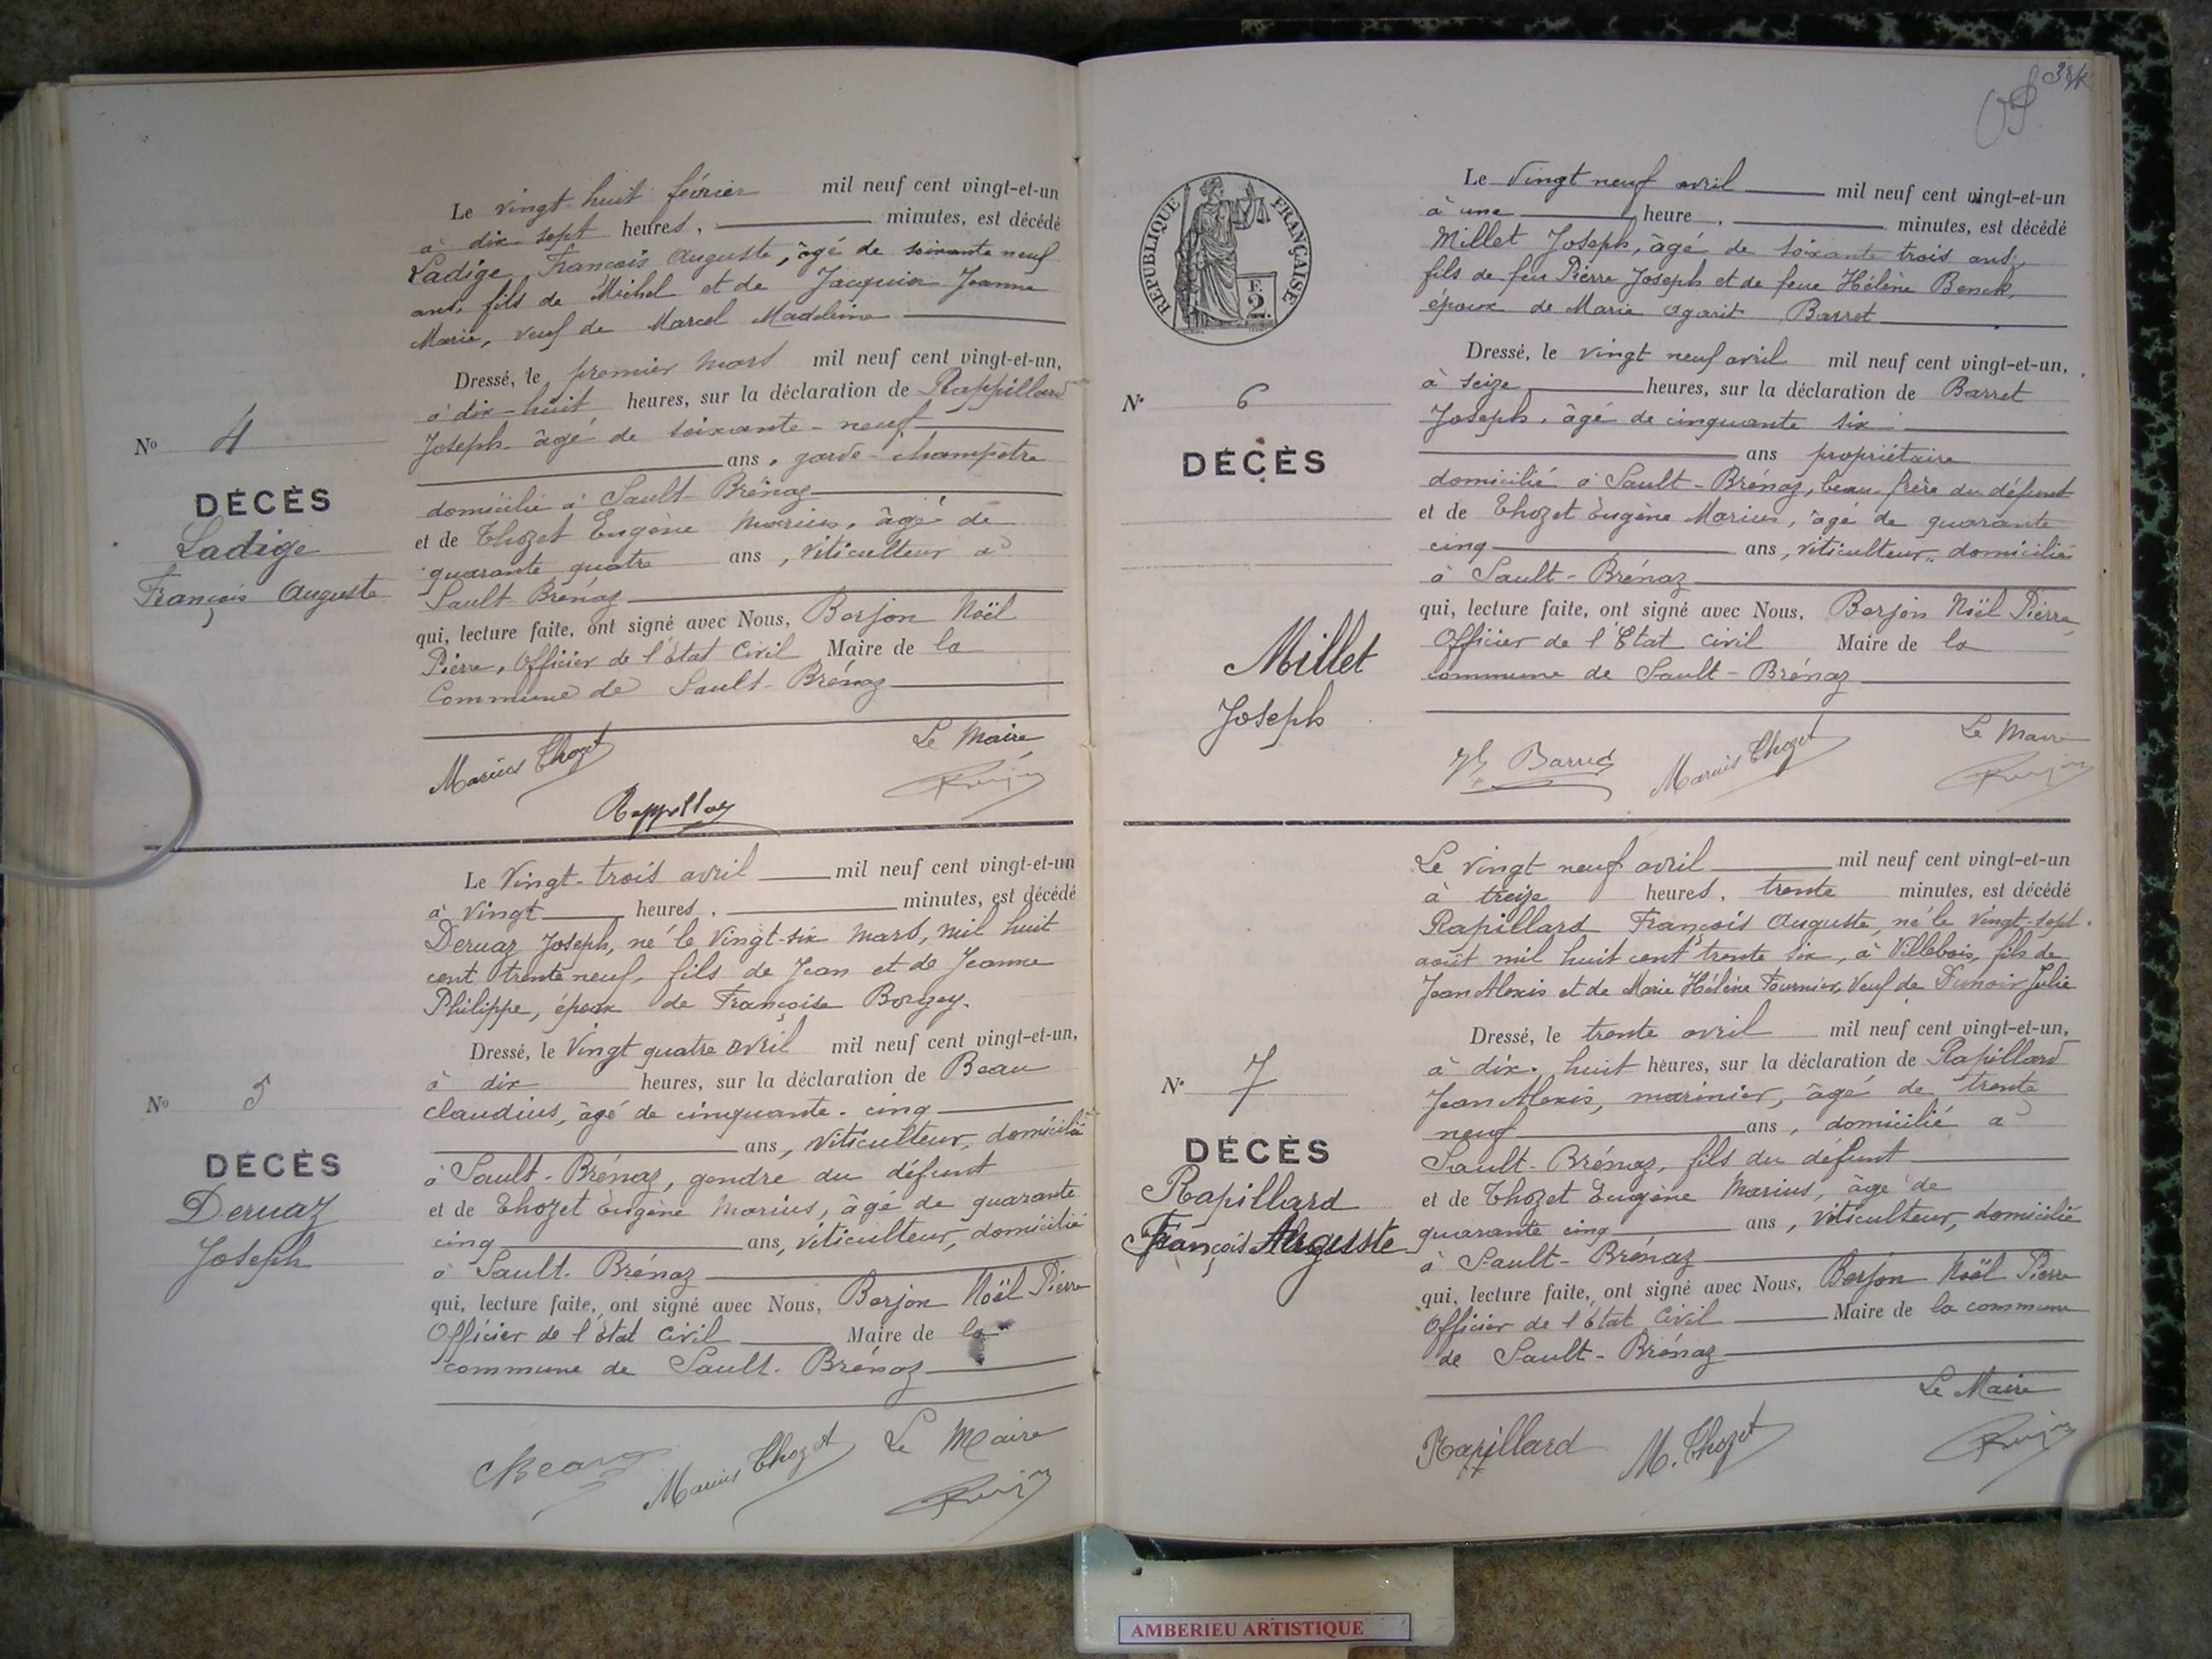 Le vingt huit février mil neuf cent vingt-et-un
à dix-sept heures, minutes, est décédé
Ladige, François Auguste, âgé de soixante neuf
ans, fils de Michel et de Jacquin Jeanne
Marie, veuf de Marcel Madeleine
Dressé, le premier mars mil neuf cent vingt-et-un,
à dix-huit heures, sur la déclaration de Rappillard
Joseph, âgé de soixante-neuf
ans, garde-champêtre
domicilié à Sault-Brénaz
et de Thozet Eugène Marius, âgé de
quarante quatre ans, viticulteur à
Sault-Brénaz
qui, lecture faite, ont signé avec Nous, Berjon Noël
Pierre, Officier de l'État Civil Maire de la
Commune de Sault-Brénaz
Marius Thozet
Le Maire
Rappillard
No 4
DÉCÈS
Ladige
François Auguste
Le Vingt-trois avril mil neuf cent vingt-et-un
à vingt heures, minutes, est décédé
Deruaz Joseph, né le vingt-six mars, mil huit
cent trente neuf, fils de Jean et de Jeanne
Philippe, époux de Françoise Borgey.
Dressé, le Vingt quatre avril mil neuf cent vingt-et-un,
à dix heures, sur la déclaration de Beau
Claudius, âgé de cinquante-cinq
ans, viticulteur, domicilié
à Sault-Brénaz, gendre du défunt
et de Thozet Eugène Marius, âgé de quarante
cinq ans, viticulteur, domicilié
à Sault-Brénaz
qui, lecture faite, ont signé avec Nous, Berjon Noël Pierre
Officier de l'État Civil Maire de la
commune de Sault-Brénaz
Marius Thozet
Le Maire
No 5
DÉCÈS
Deruaz
Joseph
RÉPUBLIQUE FRANÇAISE
F.
2.
Le Vingt neuf avril mil neuf cent vingt-et-un
à une heure, minutes, est décédé
Millet Joseph, âgé de soixante trois ans,
fils de feu Pierre Joseph et de feue Hélène Benck,
époux de Marie Agarit Barret
Dressé, le vingt neuf avril mil neuf cent vingt-et-un,
à seize heures, sur la déclaration de Barret
Joseph, âgé de cinquante six
ans propriétaire
domicilié à Sault-Brénaz, beau-frère du défunt
et de Thozet Eugène Marius, âgé de quarante
cinq ans, viticulteur, domicilié
à Sault-Brénaz
qui, lecture faite, ont signé avec Nous, Berjon Noël Pierre,
Officier de l'État Civil Maire de la
commune de Sault-Brénaz
Marius Thozet
Le Maire
No 6
DÉCÈS
Millet
Joseph
Le vingt neuf avril mil neuf cent vingt-et-un
à treize heures, trente minutes, est décédé
Rapillard François Auguste, né le vingt-sept
août mil huit cent trente six, à Villebois, fils de
Jean Alexis et de Marie Hélène Fournier, Veuf de Dunoir Julie
Dressé, le trente avril mil neuf cent vingt-et-un,
à dix-huit heures, sur la déclaration de Rapillard
Jean Alexis, marinier, âgé de trente
neuf ans, domicilié à
Sault-Brénaz, fils du défunt
et de Thozet Eugène Marius, âgé de
quarante cinq ans, viticulteur, domicilié
à Sault-Brénaz
qui, lecture faite, ont signé avec Nous, Berjon Noël Pierre
Officier de l'État Civil Maire de la commune
de Sault-Brénaz
Le Maire
Rapillard
M. Thozet
No 7
DÉCÈS
Rapillard
François Auguste
AMBERIEU ARTISTIQUE